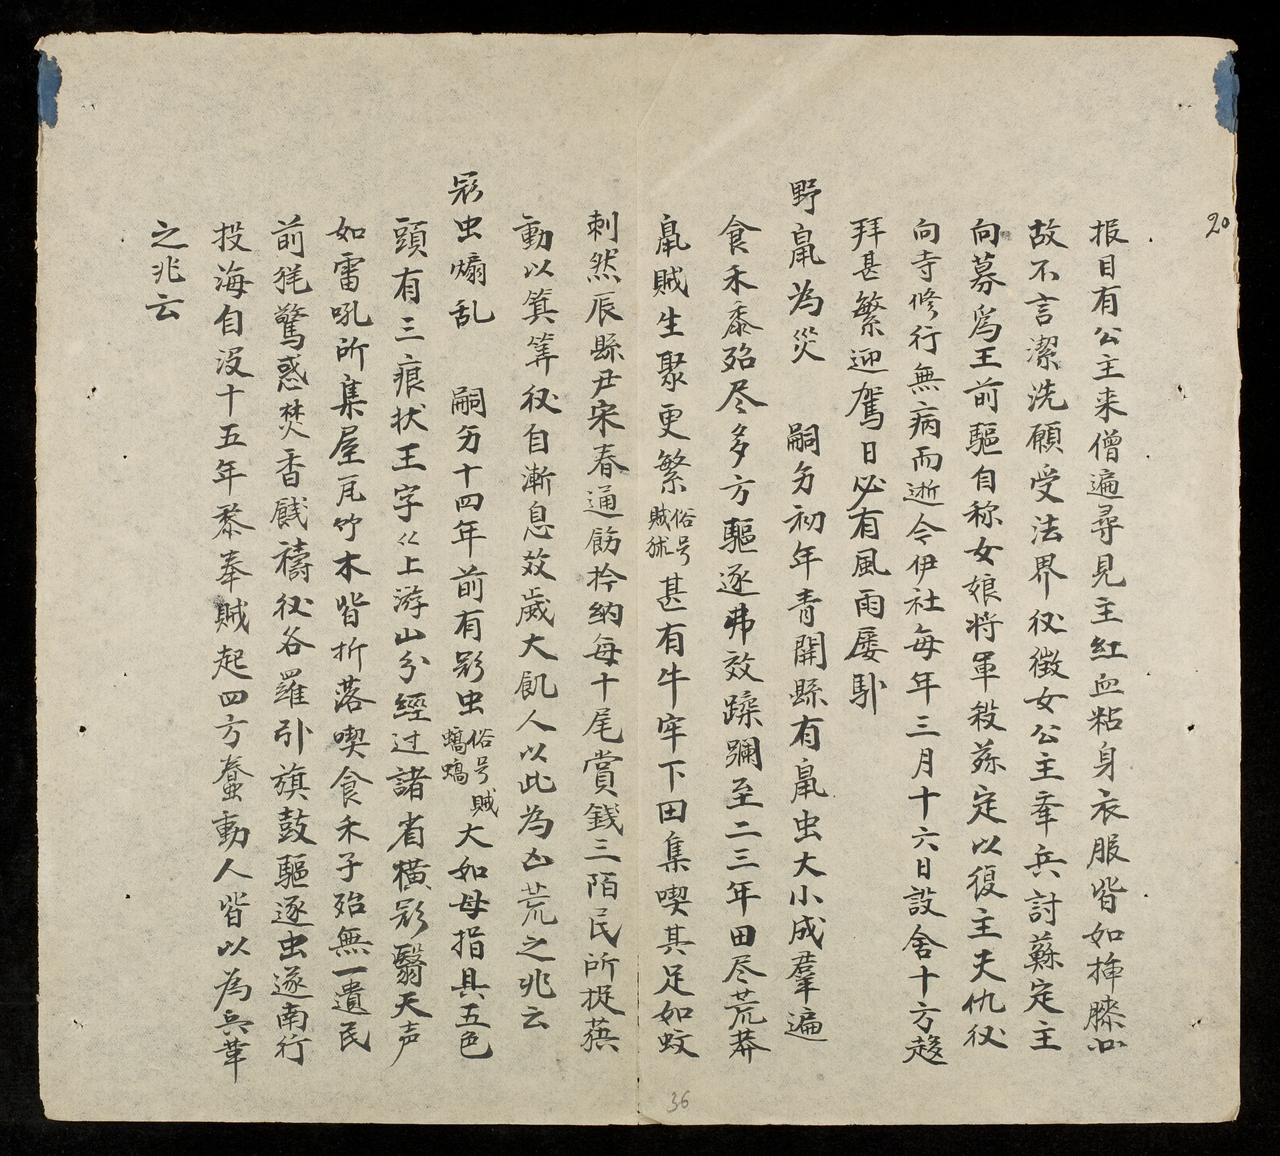 20
报目有公主来僧遍尋見主紅血粘身衣服皆如揷膝心
故不言潔洗願受法界𢖖徵女公主牽兵討蘇定主
向募爲王前驅自称女娘将軍殺蘇定以復主夫仇𢖖
向寺修行無病而逝今伊社每年三月十六日設舍十方趍
拜甚繁迎駕日必有風雨屡馿
野䑕為災 嗣𠃔初年青開縣有䑕虫大小成羣遍
食禾黍殆尽多方驅逐弗效蹂躙至二三年田尽荒莽
䑕賊生聚更繁俗号賊狀甚有牛牢下田集喫其足如蚊
刺然辰縣尹宋春通飭拎納每十尾賞錢三陌民所捉蓛
動以箕筭𢖖自漸息效歲大飢人以此為凶荒之兆云
彩虫煽乱 嗣𠃔十四年前有彩虫俗号賊蟎蟎大如母指具五色
頭有三痕状王字从上游山分經过諸省横彩翳天声
如雷吼所集屋瓦竹木皆折落喫食禾子殆無一遺民
前㲠驚惑焚香餞禱𢖖各羅引旗鼓驅逐虫遂南行
投海自没十五年黎奉賊起四方蠢動人皆以為兵革
之兆云
36